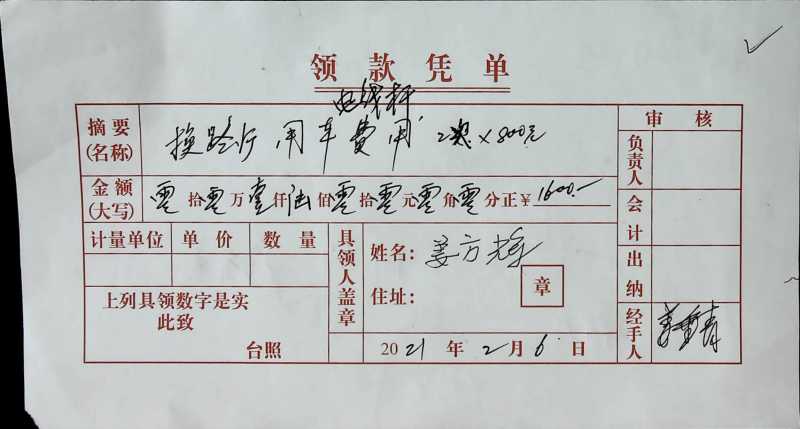 领款凭单
电线杆
摘要(名称) 换路灯 用车费用 2× 800元
审核
负责人
金额(大写) 零拾零万壹仟陆佰零拾零元零角零分正¥1600.—
会计
计量单位 单价 数量
具领人盖章 姓名:姜方
住址: 章
出纳
上列具领数字是实
此致
台照
2021年2月6日
经手人